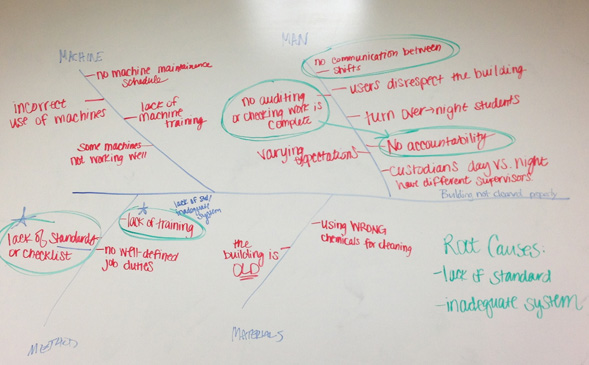 MACHINE
no machine maintainence
schedule
incorrect
use of machines
lack of
machine
training
some machines
not working well
MAN
no communication between
shifts
users disrespect the building
no auditing
or checking work is
complete
turn over→night students
No accountability
varying expectations
custodians day vs. night
have different supervisors
Building not cleaned properly
lack of std/
inadequate
system
lack of standards
or checklist
lack of training
no well-defined
job duties
METHODS
using WRONG
chemicals for cleaning
the
building is
OLD
MATERIALS
Root Causes:
-lack of standard
-inadequate system